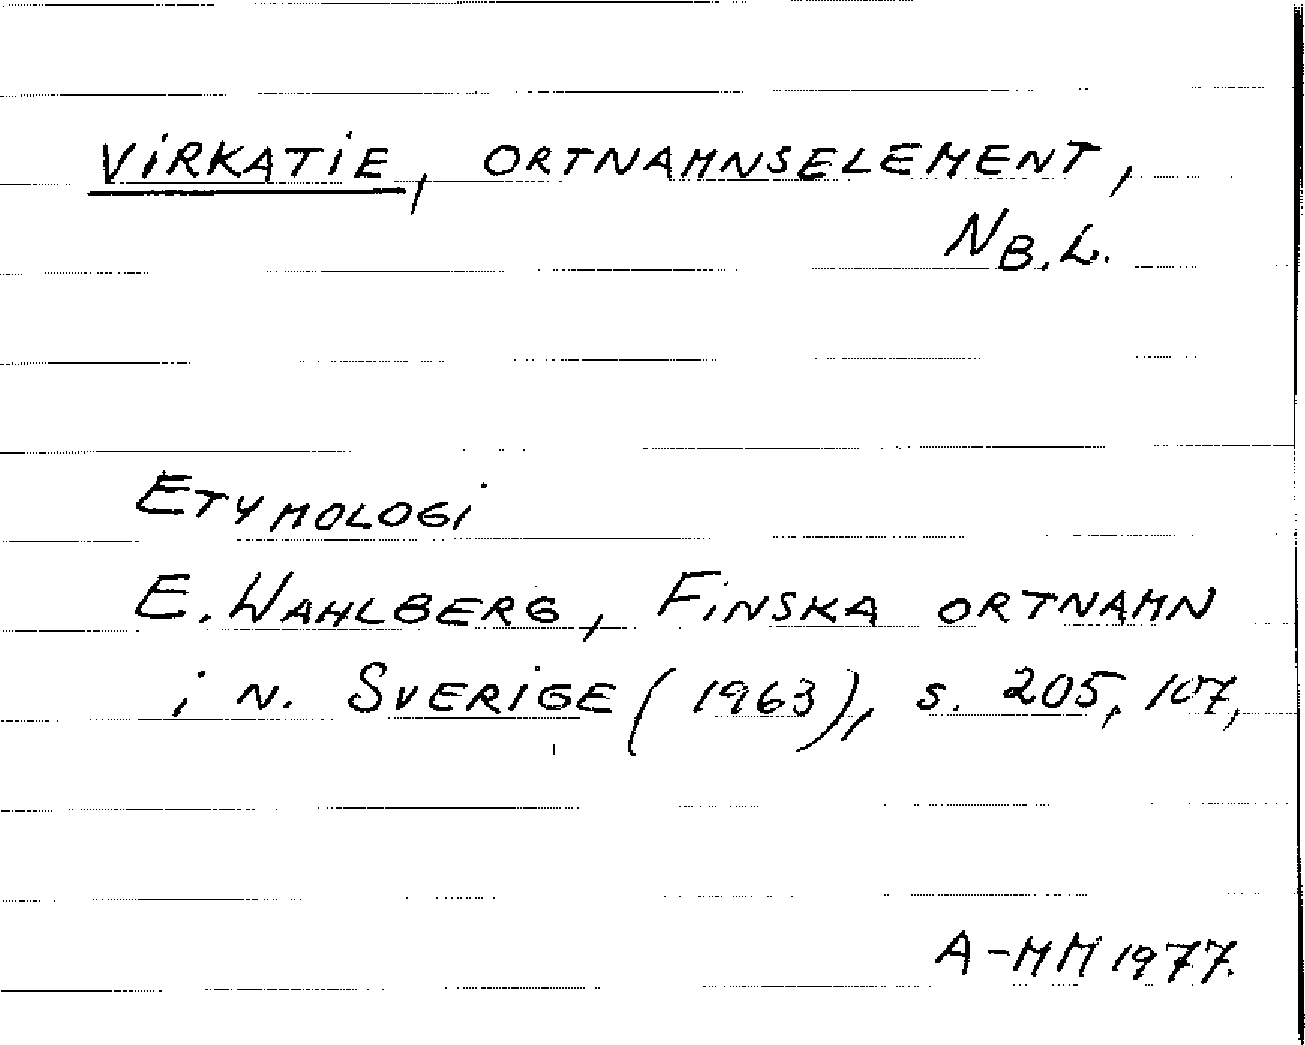 VIRKATIE, ORTNAMNSELEMENT,
NB.L.
ETYMOLOGI
E. WAHLBERG, FINSKA ORTNAMN
i N. SVERIGE (1963), S. 205, 107,
A-MM 1977.